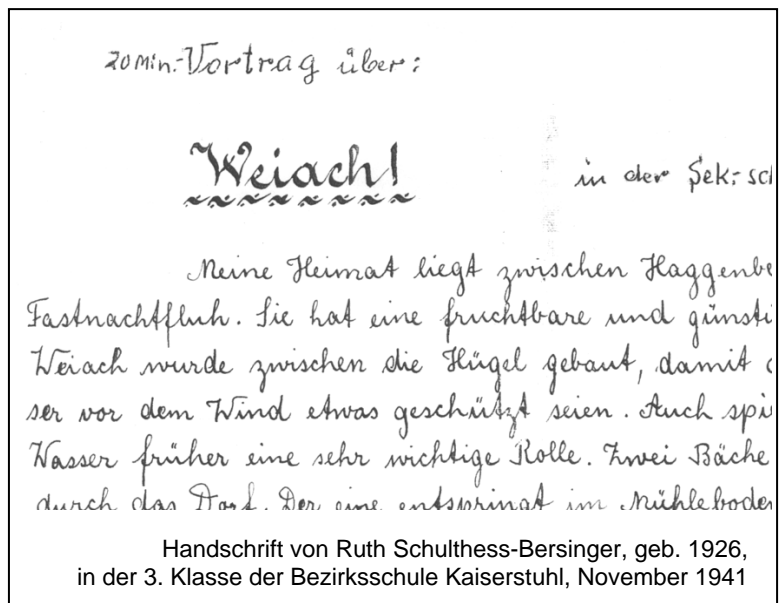 20 Min.-Vortrag über:
Weiach!
in der Sek.-sch
Meine Heimat liegt zwischen Haggenbe
Fastnachtfluh. Sie hat eine fruchtbare und günsti
Weiach wurde zwischen die Hügel gebaut, damit
ser vor dem Wind etwas geschützt seien. Auch spi
Wasser früher eine sehr wichtige Rolle. Zwei Bäche
durch das Dorf. Der eine entspringt im Mühleboden
Handschrift von Ruth Schulthess-Bersinger, geb. 1926,
in der 3. Klasse der Bezirksschule Kaiserstuhl, November 1941